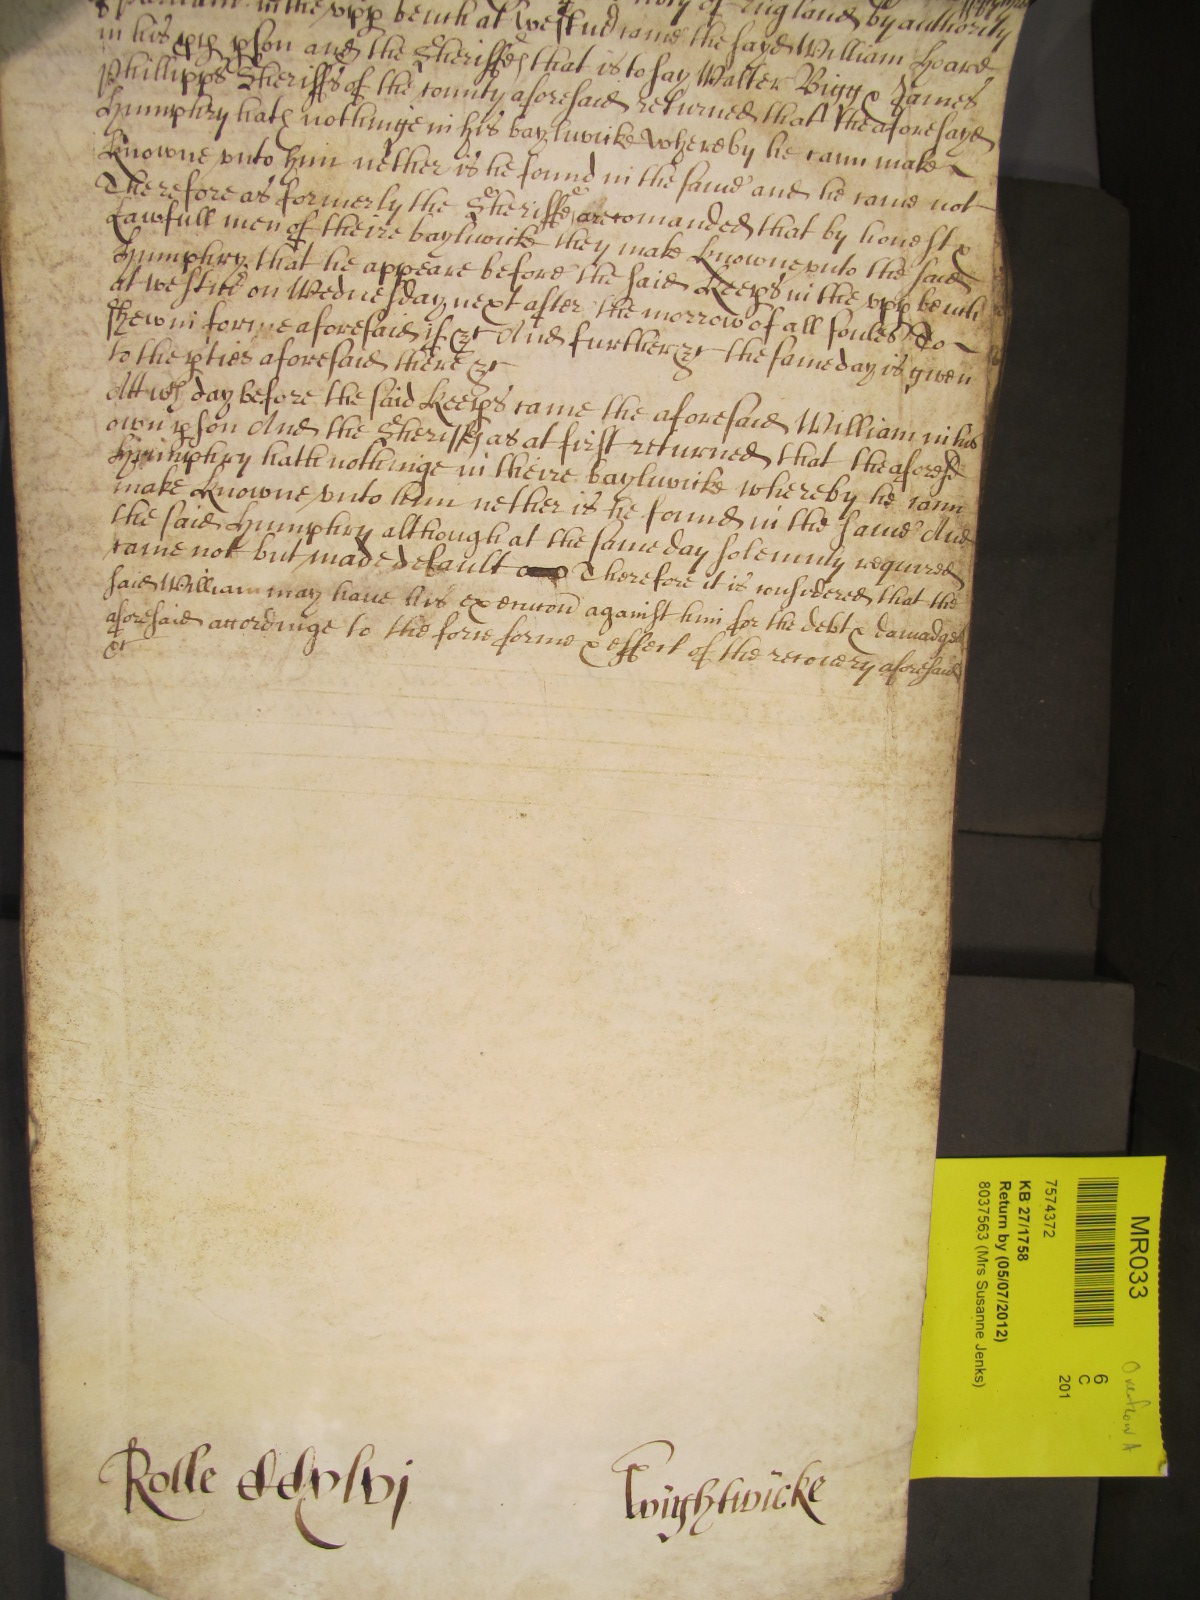 in the upp bench at Westmr came the sayd William Hoare
in his pson and the Sheriffes that is to say Walter Bigg & James
Phillipps Sheriffs of the county aforesaid returned that the aforesayd
Humphry hath nothinge in his baylywicke whereby he cann make
knowne vnto him nether is he found in the same and he came not
Therefore as formerly the Sheriffes are comanded that by honest &
Lawfull men of theire baylywicke they make knowne vnto the said
Humphry that he appeare before the said Keeps in the upp bench
at Westmr on Wednesday next after the morrow of all soules To
shew in forme aforesaid if &c And further &c the same day is given
to the pties aforesaid there &c
Att wch day before the said Keeps came the aforesaid William in his
own pson And the Sheriffes as at first returned that the aforesd
Humphry hath nothinge in theire baylywicke whereby he cann
make knowne vnto him nether is he found in the same And
the said Humphry although at the same day solemnly required
came not but made default Therefore it is considered that the
said William may haue his execucon against him for the debt & damadges
aforesaid accordinge to the force forme & effect of the recovery aforesaid
&c
Rolle ddxlvj
Wightwicke
MR033
7574372
KB 27/1758
Return by (05/07/2012)
8037563 (Mrs Susanne Jenks)
6
C
201
Overflow A